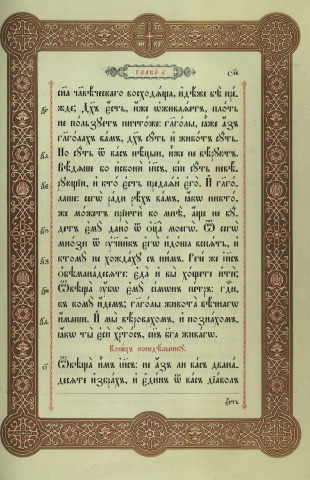 ГЛАВА ѕ҃
сн҃а чл҃вѣ́ческаго восходѧ́ща, и҆дѣ́же бѣ̀ пре́-
жде: Дх҃ъ є҆́сть, и҆́же ѡ҆живлѧ́етъ, пло́ть
не по́льзꙋетъ ничто́же: гл҃го́лы, ꙗ҆̀же а҆́зъ
гл҃го́лахъ ва́мъ, дх҃ъ сꙋ́ть и҆ живо́тъ сꙋ́ть.
Но сꙋ́ть ѿ ва́съ нѣ́цыи, и҆̀же не вѣ́рꙋютъ.
Вѣ́дѧше бо и҆сконѝ і҆и҃съ, кі́и сꙋ́ть невѣ́-
рꙋющіи, и҆ кто̀ є҆́сть предаѧ́й є҆го̀. И҆ гл҃го́-
лаше: сегѡ̀ ра́ди рѣ́хъ ва́мъ, ꙗ҆́кѡ никто́-
же мо́жетъ прїитѝ ко мнѣ̀, а҆́ще не бꙋ́-
детъ є҆мꙋ̀ дано̀ ѿ ѻ҆ц҃а̀ моегѡ̀. Ѿ сегѡ̀
мно́зи ѿ ᲂу҆чн҃къ є҆гѡ̀ и҆до́ша вспѧ́ть, и҆
ктомꙋ̀ не хожда́хꙋ съ ни́мъ. Рече́ же і҆и҃съ
ѻ҆бѣмана́десѧте: є҆да̀ и҆ вы̀ хо́щете и҆тѝ;
Ѿвѣща̀ ᲂу҆́бѡ є҆мꙋ̀ сі́мѡнъ пе́тръ: гдⷭ҇и,
къ комꙋ̀ и҆́демъ; гл҃го́лы живота̀ вѣ́чнагѡ
и҆́маши. И҆ мы̀ вѣ́ровахомъ, и҆ позна́хомъ,
ꙗ҆́кѡ ты̀ є҆сѝ хрⷭ҇то́съ, сн҃ъ бг҃а жива́гѡ.
Коне́цъ понедѣ́льникꙋ.
Ѿвѣща̀ и҆̀мъ і҆и҃съ: не а҆́зъ ли ва́съ двана́-
десѧте и҆збра́хъ, и҆ є҆ди́нъ ѿ ва́съ дїа́волъ
є҆́сть